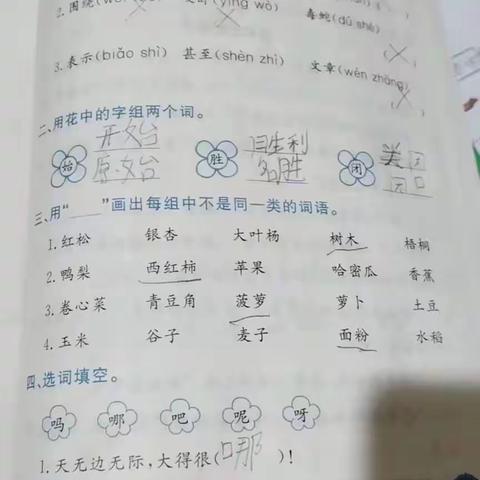 2.围绕
毒蛇(dú shé)
3.表示(biǎo shì) 甚至(shèn zhì) 文章(wén zhāng)
( )
二、用花中的字组两个词。
开始 胜利
始 胜 闭
原始 名胜
三、用“____”画出每组中不是同一类的词语。
1.红松 银杏 大叶杨 树木 梧桐
2.鸭梨 西红柿 苹果 哈密瓜 香蕉
3.卷心菜 青豆角 菠萝 萝卜 土豆
4.玉米 谷子 麦子 面粉 水稻
四、选词填空。
吗 哪 吧 呢 呀
1.天无边无际,大得很(哪)!